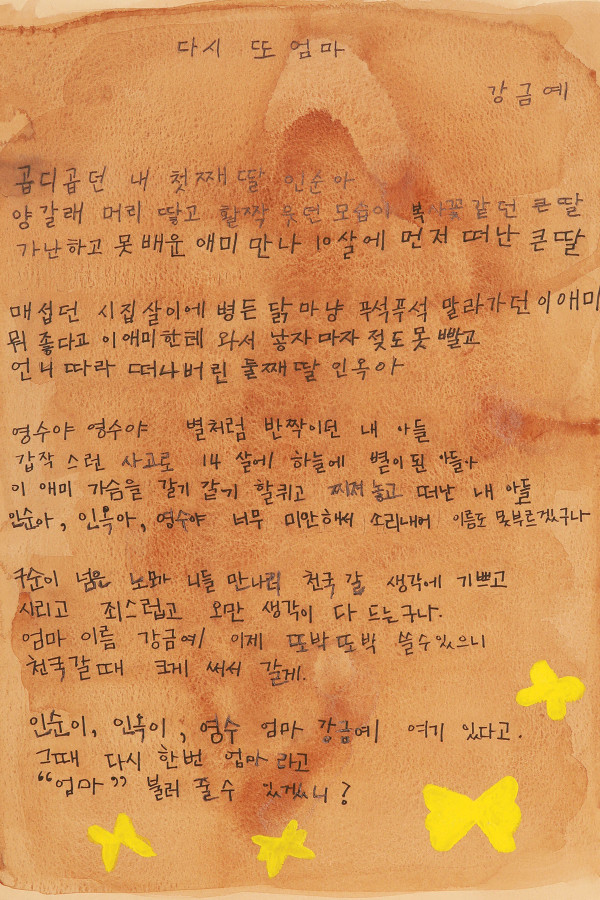 다시 또 엄마
강금예
곱디곱던 내 첫째 딸 인순아
양갈래 머리 땋고 활짝 웃던 모습이 복사꽃 같던 큰 딸
가난하고 못 배운 애미 만나 10살에 먼저 떠난 큰 딸
매섭던 시집살이에 병든 닭 마냥 푸석푸석 말라가던 이 애미
뭐 좋다고 이 애미한테 와서 낳자마자 젖도 못 빨고
언니 따라 떠나버린 둘째 딸 인옥아
영수야 영수야 별처럼 반짝이던 내 아들
갑작스런 사고로 14살에 하늘에 별이 된 아들아
이 애미 가슴을 갈기갈기 할퀴고 찢져놓고 떠난 내 아들
인순아, 인옥아, 영수야 너무 미안해서 소리내어 이름도 못부르겠구나
70순이 넘은 노모가 니들 만나러 천국 갈 생각에 기쁘고
시리고 죄스럽고 오만 생각이 다 드는구나.
엄마 이름 강금예 이제 또박또박 쓸수있으니
천국갈때 크게 써서 갈게.
인순이, 인옥이, 영수 엄마 강금예 여기 있다고.
그때 다시 한번 엄마라고
“엄마” 불러 줄 수 있겠니?